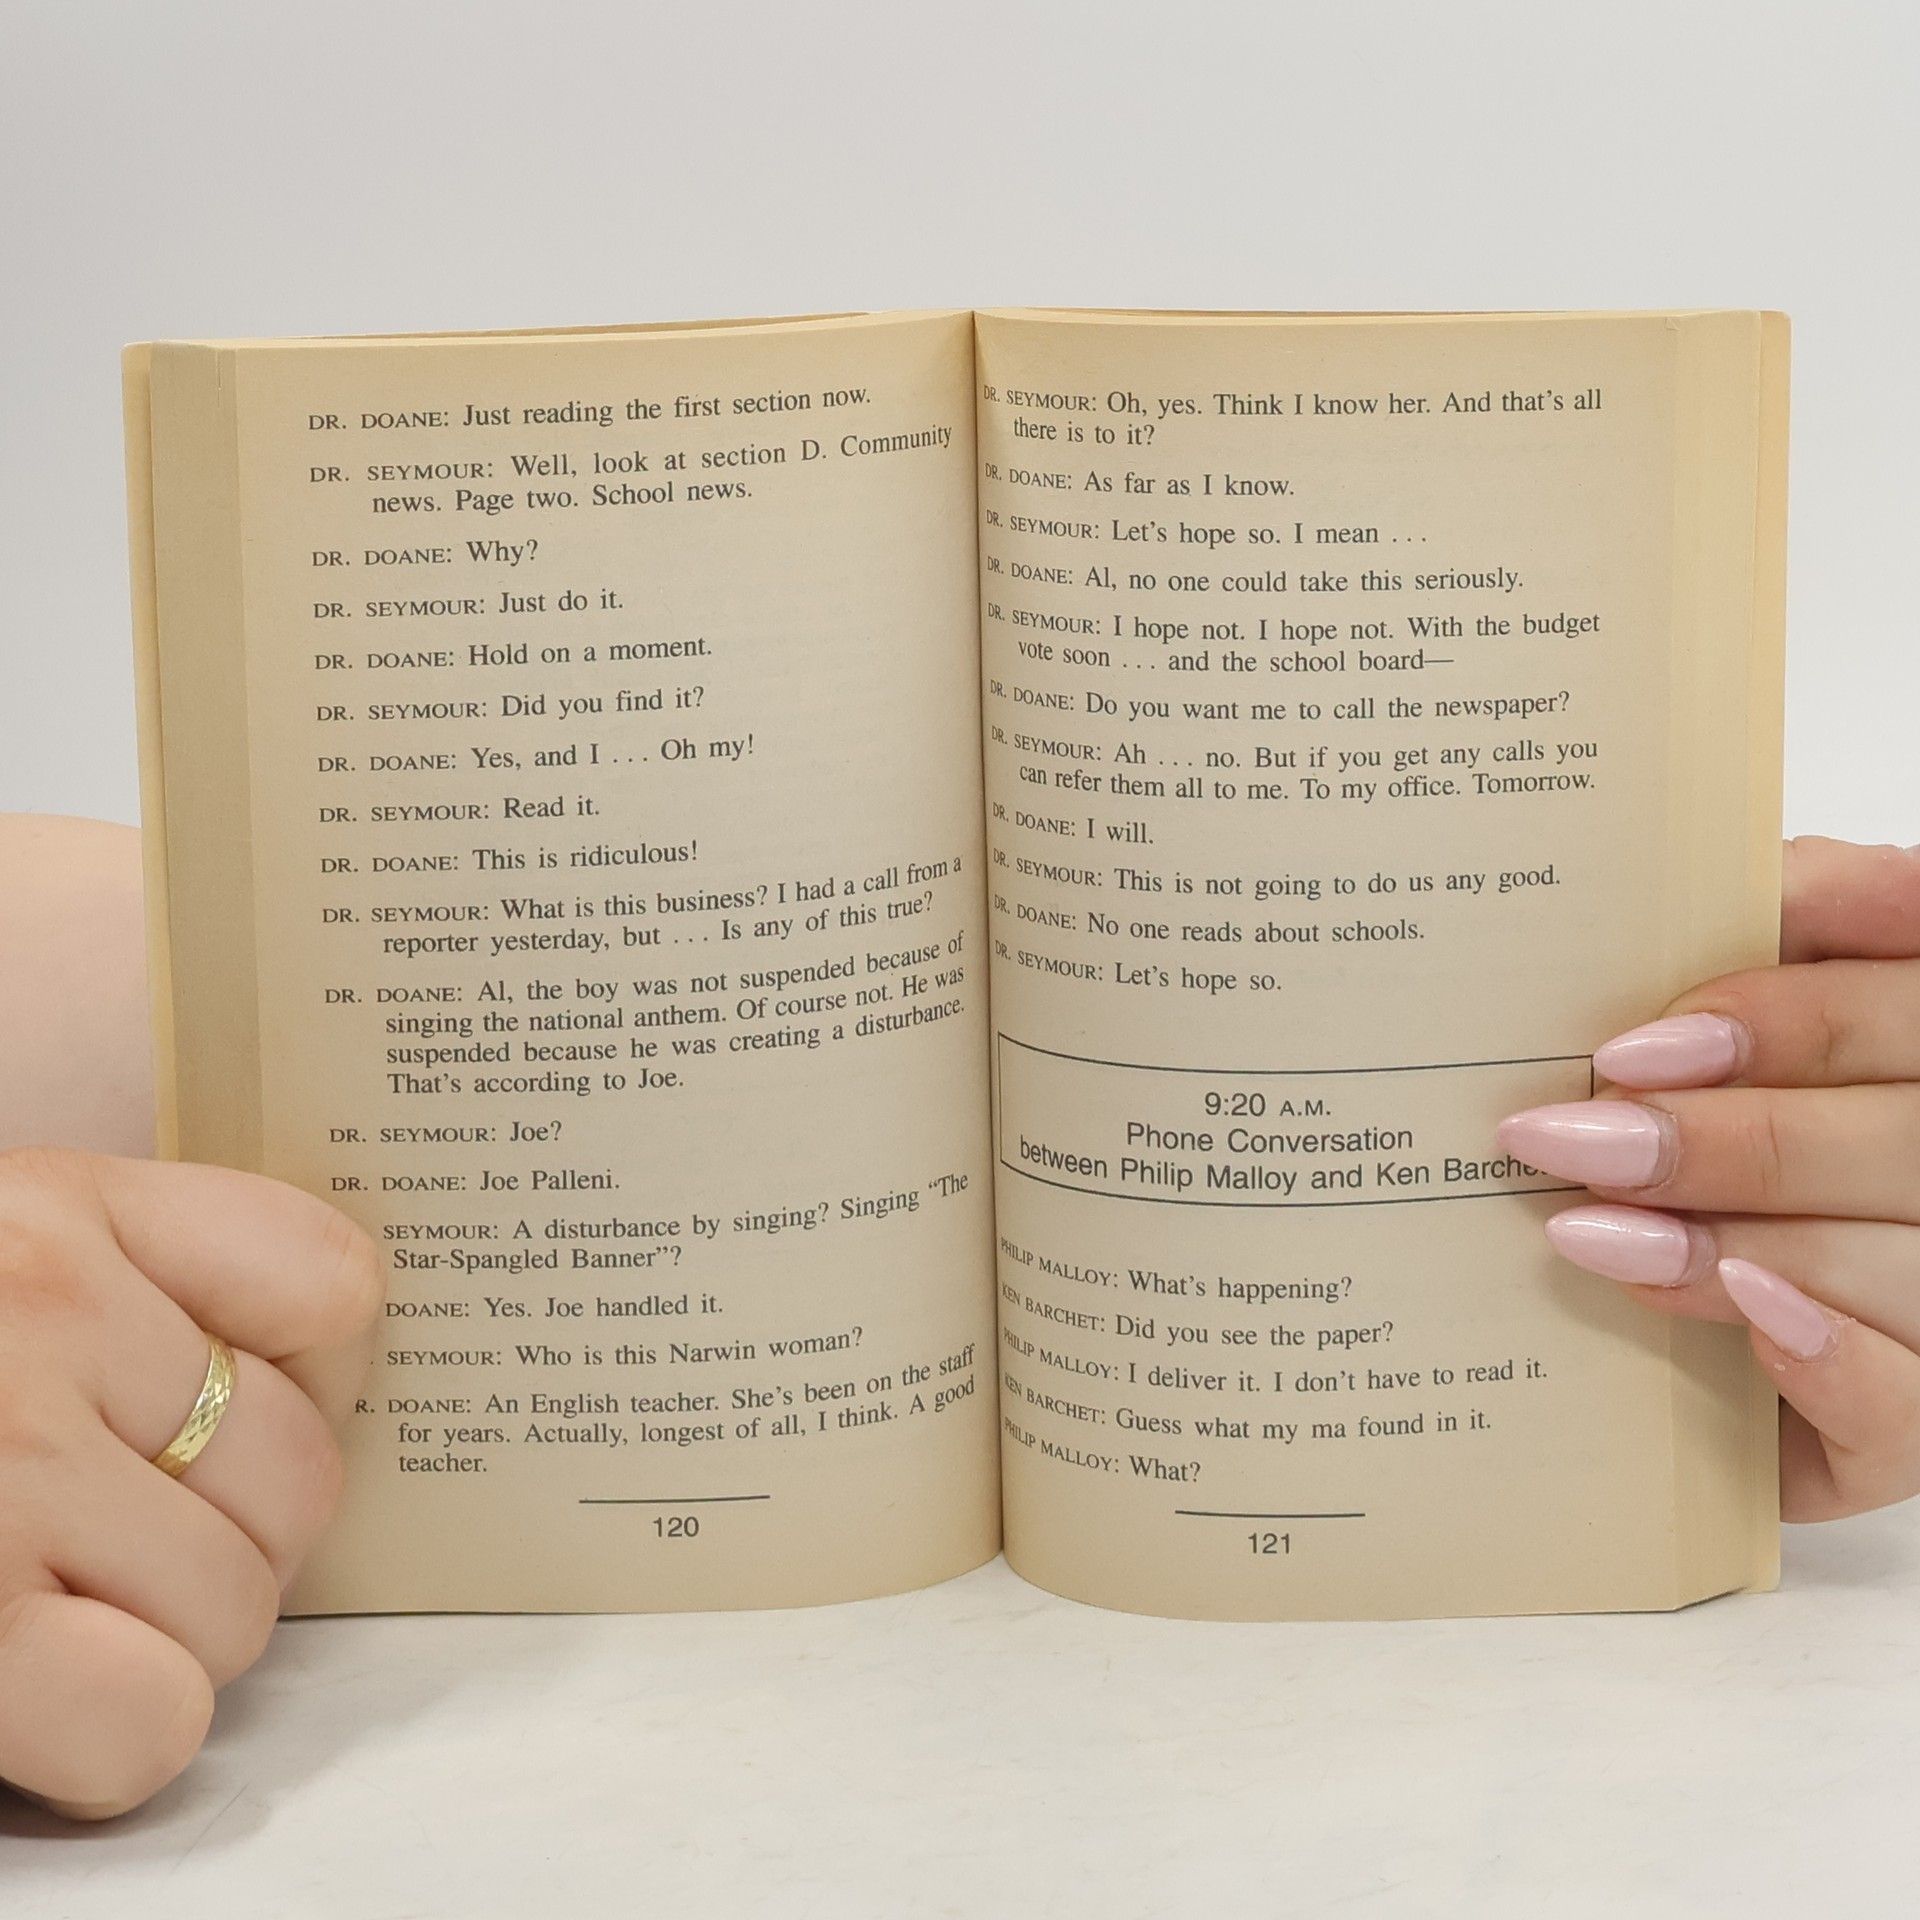 DR. DOANE: Just reading the first section now.
DR. SEYMOUR: Well, look at section D. Community
news. Page two. School news.
DR. DOANE: Why?
DR. SEYMOUR: Just do it.
DR. DOANE: Hold on a moment.
DR. SEYMOUR: Did you find it?
DR. DOANE: Yes, and I . . . Oh my!
DR. SEYMOUR: Read it.
DR. DOANE: This is ridiculous!
DR. SEYMOUR: What is this business? I had a call from a
reporter yesterday, but . . . Is any of this true?
DR. DOANE: Al, the boy was not suspended because of
singing the national anthem. Of course not. He was
suspended because he was creating a disturbance.
That's according to Joe.
DR. SEYMOUR: Joe?
DR. DOANE: Joe Palleni.
SEYMOUR: A disturbance by singing? Singing “The
Star-Spangled Banner”?
DOANE: Yes. Joe handled it.
. SEYMOUR: Who is this Narwin woman?
R. DOANE: An English teacher. She's been on the staff
for years. Actually, longest of all, I think. A good
teacher.
120
DR. SEYMOUR: Oh, yes. Think I know her. And that's all
there is to it?
DR. DOANE: As far as I know.
DR. SEYMOUR: Let's hope so. I mean . . .
DR. DOANE: Al, no one could take this seriously.
DR. SEYMOUR: I hope not. I hope not. With the budget
vote soon . . . and the school board—
DR. DOANE: Do you want me to call the newspaper?
DR. SEYMOUR: Ah . . . no. But if you get any calls you
can refer them all to me. To my office. Tomorrow.
DR. DOANE: I will.
DR. SEYMOUR: This is not going to do us any good.
DR. DOANE: No one reads about schools.
DR. SEYMOUR: Let's hope so.
9:20 A.M.
Phone Conversation
between Philip Malloy and Ken
PHILIP MALLOY: What's happening?
KEN BARCHET: Did you see the paper?
PHILIP MALLOY: I deliver it. I don't have to read it.
KEN BARCHET: Guess what my ma found in it.
PHILIP MALLOY: What?
121